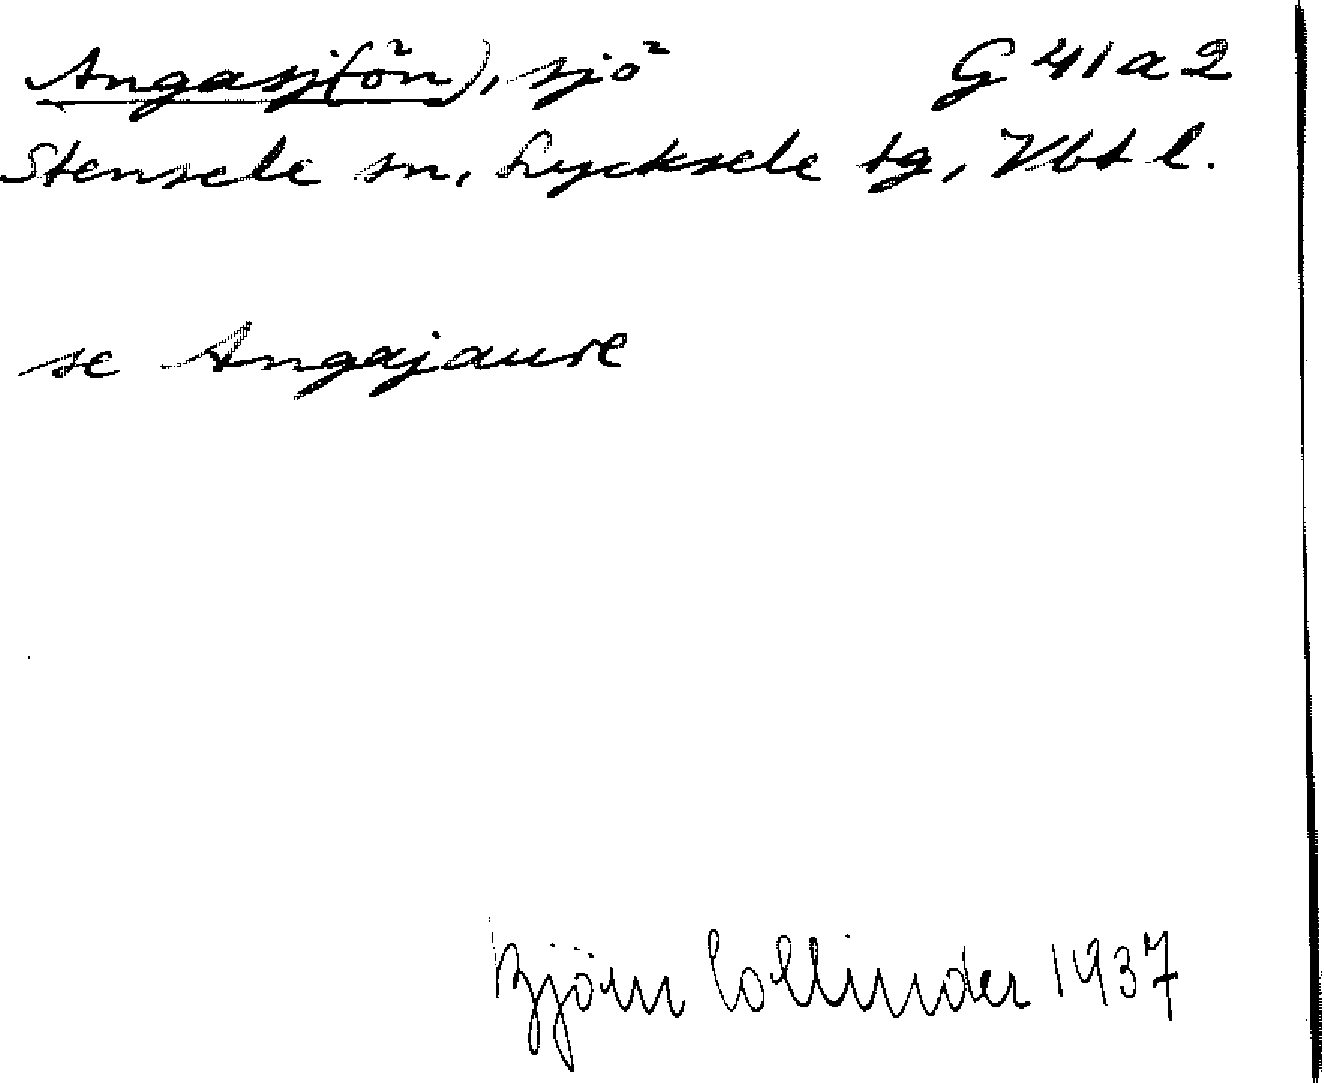 Angasj(ön), sjö G 41 a 2
Stensele sn, Lycksele tg, Vbt l.
se Angajaure
Björn Collinder 1937